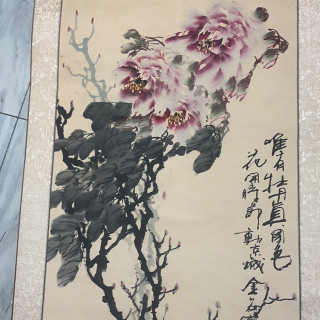 唯有牡丹真國色
花開時節動京城
金